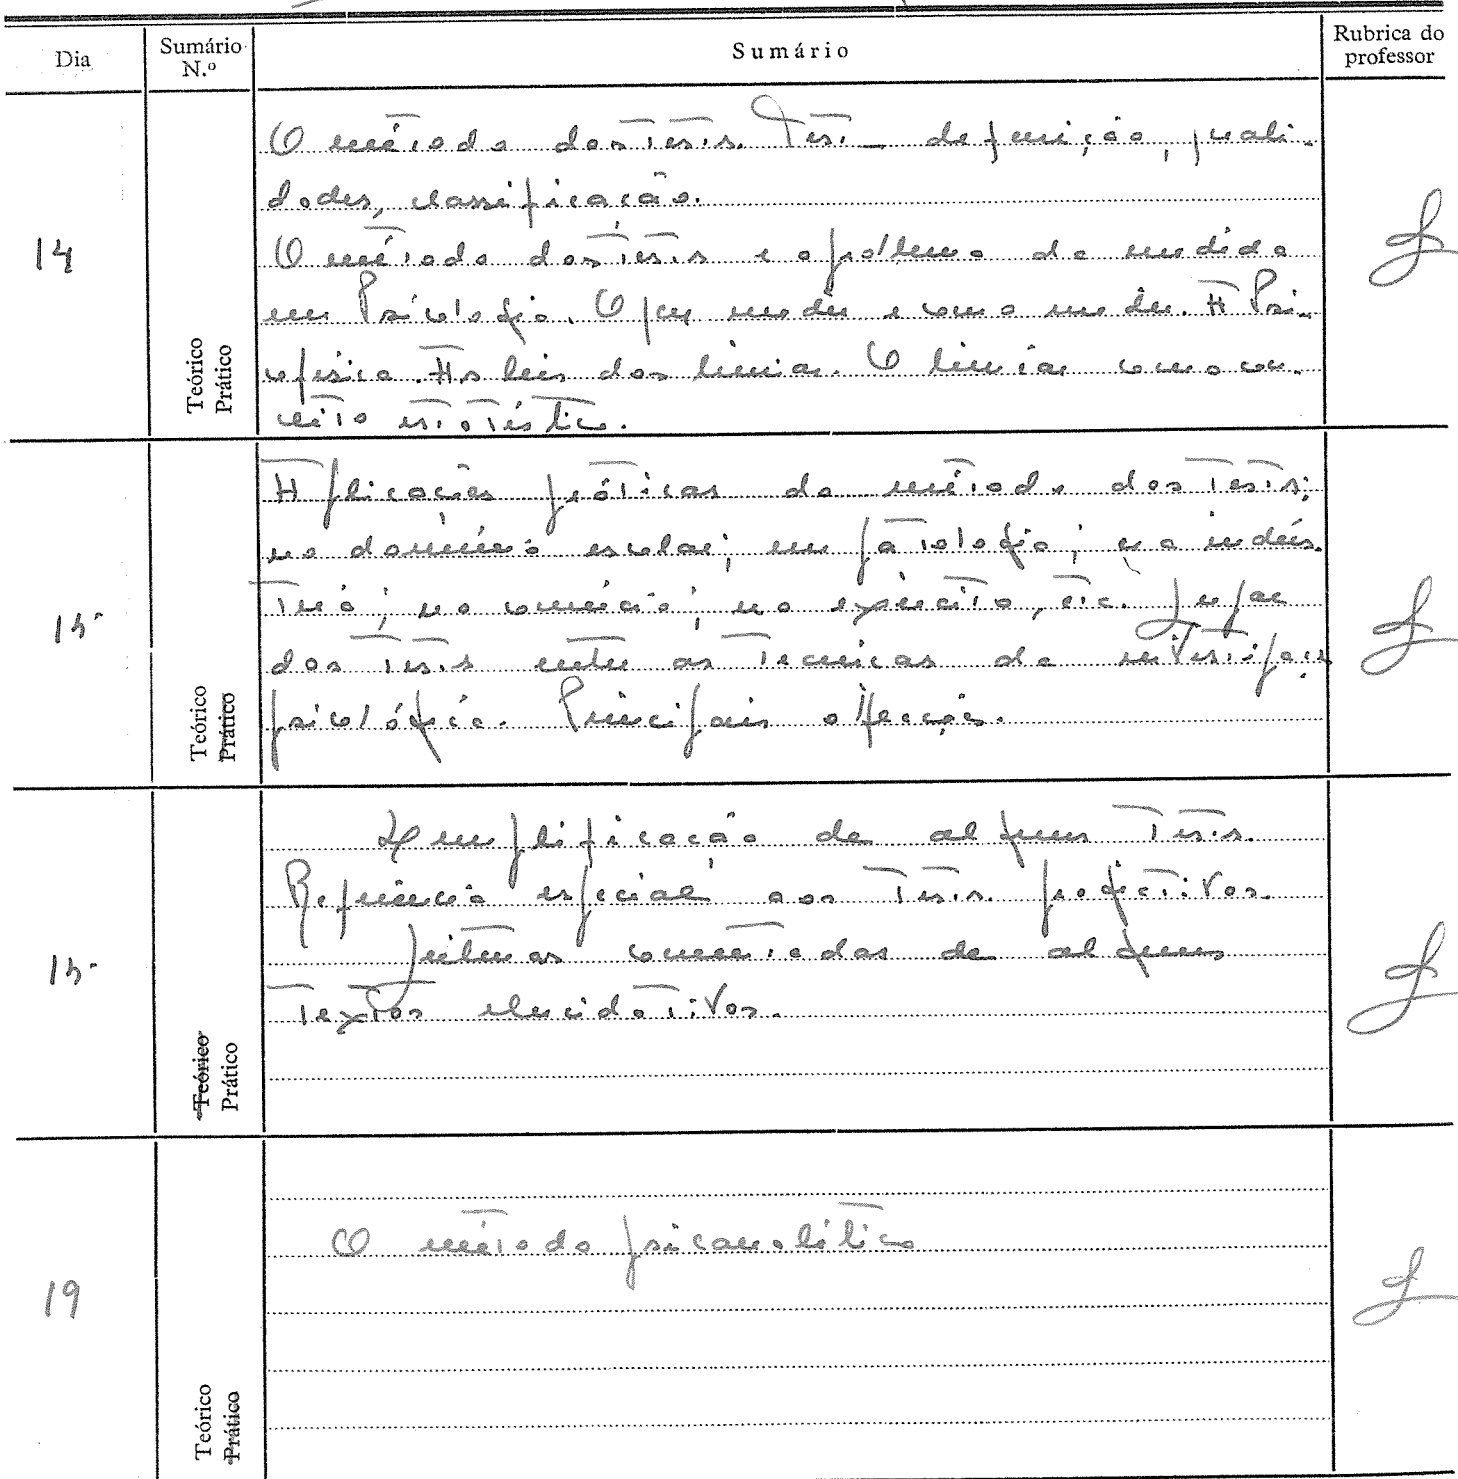 Dia
Sumário N.º
Sumário
Rubrica do professor
14
Teórico
Prático
O método dos tests. Test — definição, quali-
dades, classificação.
O método dos tests e o problema da medida
em Psicologia. O que medir e como medir. A Psi-
cofísica. As leis dos limiar. O limiar como con-
ceito estatístico.
15
Teórico
Prático
Aplicações práticas do método dos tests:
no domínio escolar; em patologia; na indús-
tria; no comércio; no exército, etc. Lugar
dos tests entre as técnicas de
psicológica. Principais objecções.
15
Teórico
Prático
Exemplificação de alguns tests.
Referência especial aos tests projectivos.
Leituras comentadas de alguns
textos elucidativos.
19
Teórico
Prático
O método psicanalítico